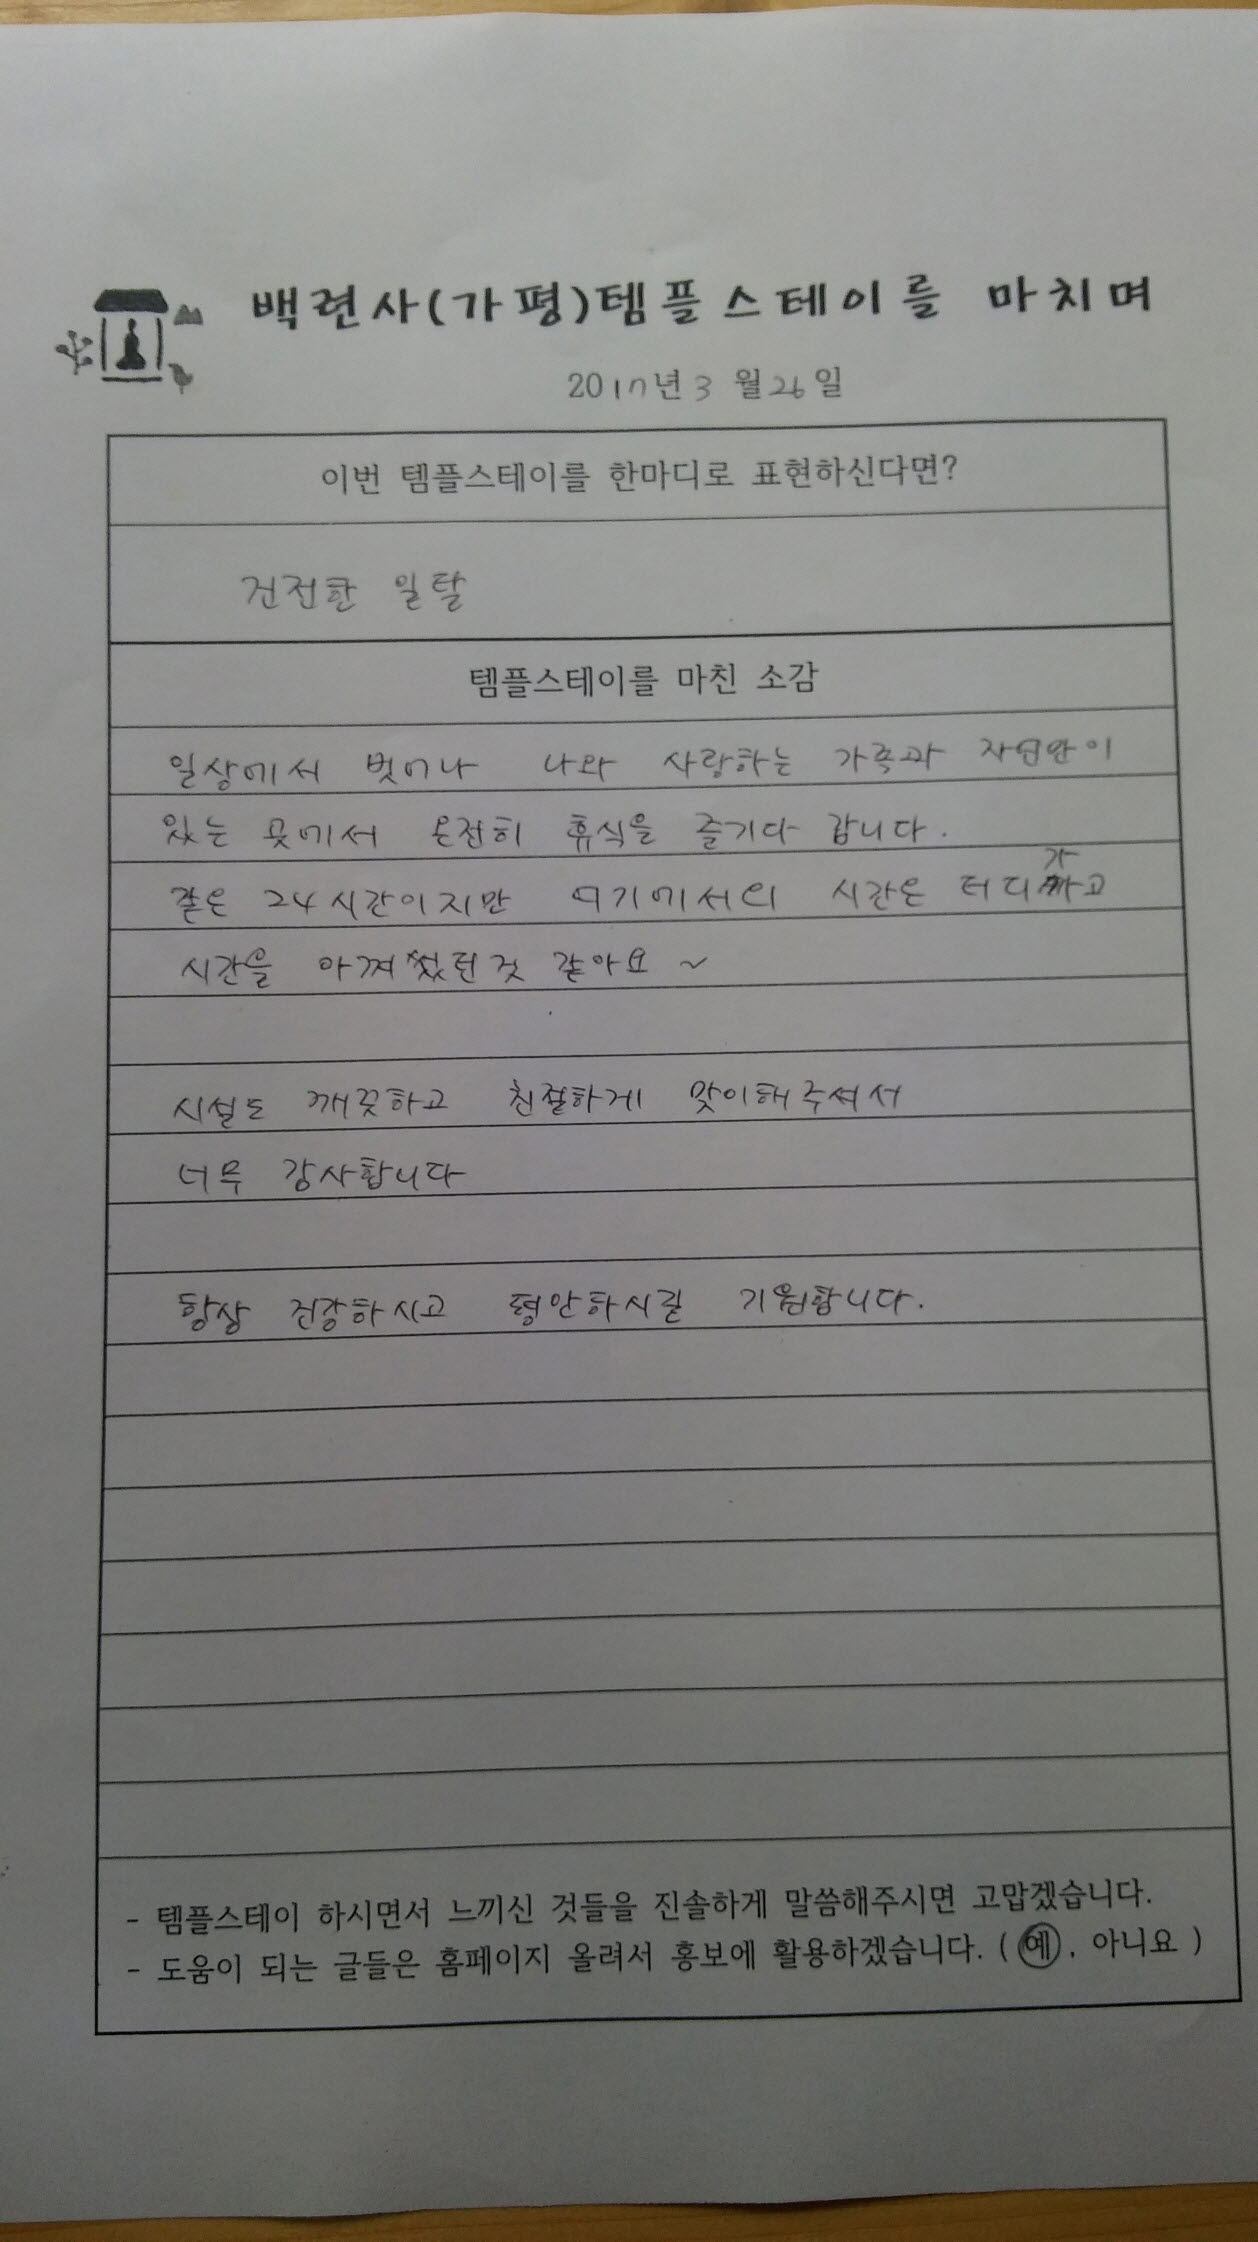 백련사(가평)템플스테이를 마치며
2017년 3월 26일
이번 템플스테이를 한마디로 표현하신다면?
건전한 일탈
템플스테이를 마친 소감
일상에서 벗어나 나와 사랑하는 가족과 자연만이
있는 곳에서 온전히 휴식을 즐기다 갑니다.
같은 24시간이지만 여기에서의 시간은 더디가고
시간을 아껴썼던것 같아요~
시설도 깨끗하고 친절하게 맞이해주셔서
너무 감사합니다
항상 건강하시고 평안하시길 기원합니다.
- 템플스테이 하시면서 느끼신 것들을 진솔하게 말씀해주시면 고맙겠습니다.
- 도움이 되는 글들은 홈페이지 올려서 홍보에 활용하겠습니다. ( 예 , 아니요 )